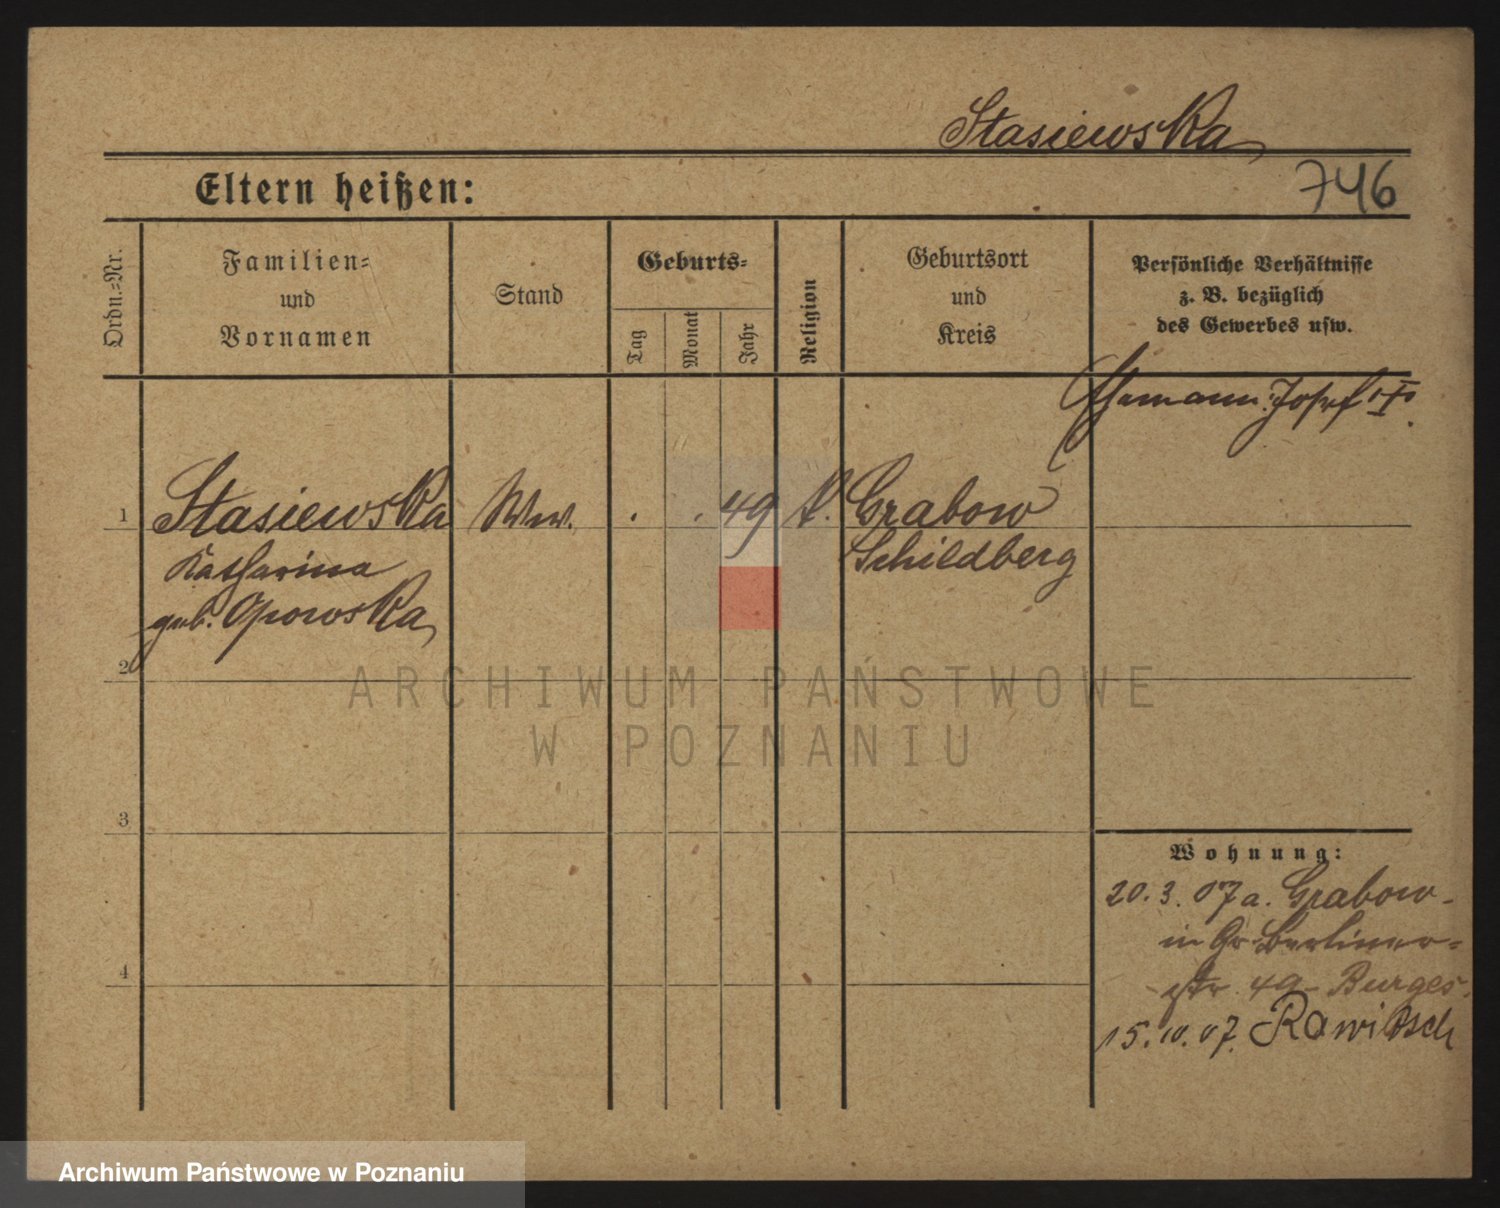 Stasiewska
746
Eltern heißen:
Ordn.-Nr.
Familien-
und
Vornamen
Stand
Geburts-
Tag
Monat
Jahr
Religion
Geburtsort
und
Kreis
Persönliche Verhältnisse
z. B. bezüglich
des Gewerbes usw.
Ehemann: Josef
1 Stasiewska Ww. . . 49 k. Grabow
Katharina Schildberg
geb. Opowska
2
ARCHIWUM PAŃSTWOWE
W POZNANIU
3
Wohnung:
20. 3. 07 a. Grabow-
in Gr. Berliner-
4
str. 49 - Burges.
15. 10. 07. Rawitsch
Archiwum Państwowe w Poznaniu